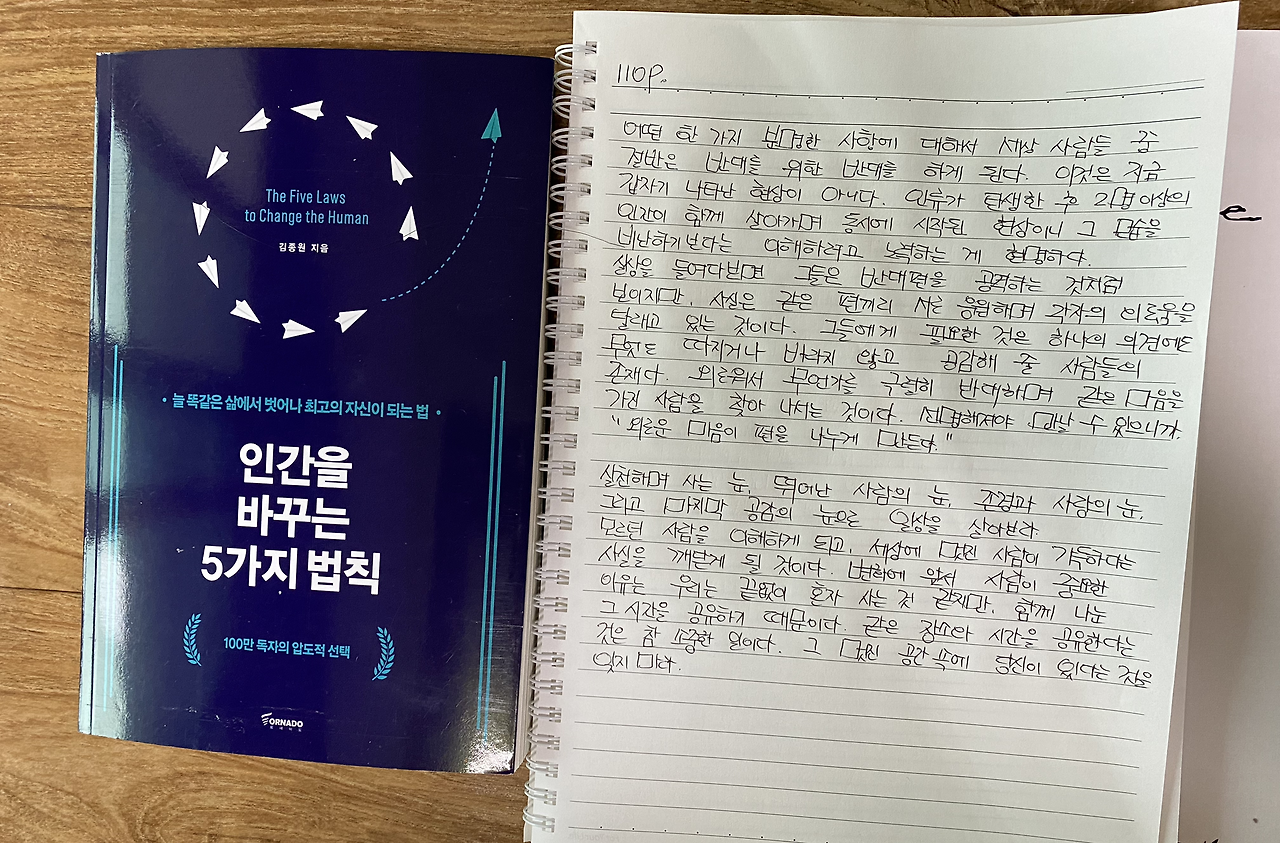 The Five Laws
to Change the Human
김종원 지음
• 늘 똑같은 삶에서 벗어나 최고의 자신이 되는 법 •
인간을
바꾸는
5가지 법칙
100만 독자의 압도적 선택
TORNADO
110p.
어떤 한 가지 분명한 사항에 대해서 세상 사람들 중
절반은 반대를 위한 반대를 하게 된다. 이것은 지금
갑자기 나타난 현상이 아니다. 인류가 탄생한 후 2명 이상의
인간이 함께 살아가며 동시에 시작된 현상이니 그 모습을
비난하기보다는 이해하려고 노력하는 게 현명하다.
실상을 들여다보면 그들은 반대편을 공격하는 것처럼
보이지만, 사실은 같은 편끼리 서로 응원하며 각자의 외로움을
달래고 있는 것이다. 그들에게 필요한 것은 하나의 의견에도
무엇도 따지거나 바라지 않고 공감해 줄 사람들의
존재다. 외로워서 무언가를 극렬히 반대하며 같은 마음을
가진 사람을 찾아 나서는 것이다. 선명해져야 만날 수 있으니까.
"외로운 마음이 편을 나누게 만든다."
실천하며 사는 눈, 뛰어난 사람의 눈, 존경과 사랑의 눈,
그리고 마지막 공감의 눈으로 일상을 살아보라.
모르던 사람을 이해하게 되고, 세상에 멋진 사람이 가득하다는
사실을 깨닫게 될 것이다. 변화에 앞서 사람이 중요한
이유는 우리는 끝없이 혼자 사는 것 같지만, 함께 나눈
그 시간을 공유하기 때문이다. 같은 장소와 시간을 공유한다는
것은 참 소중한 일이다. 그 멋진 공간 속에 당신이 있다는 것을
잊지 마라.
e